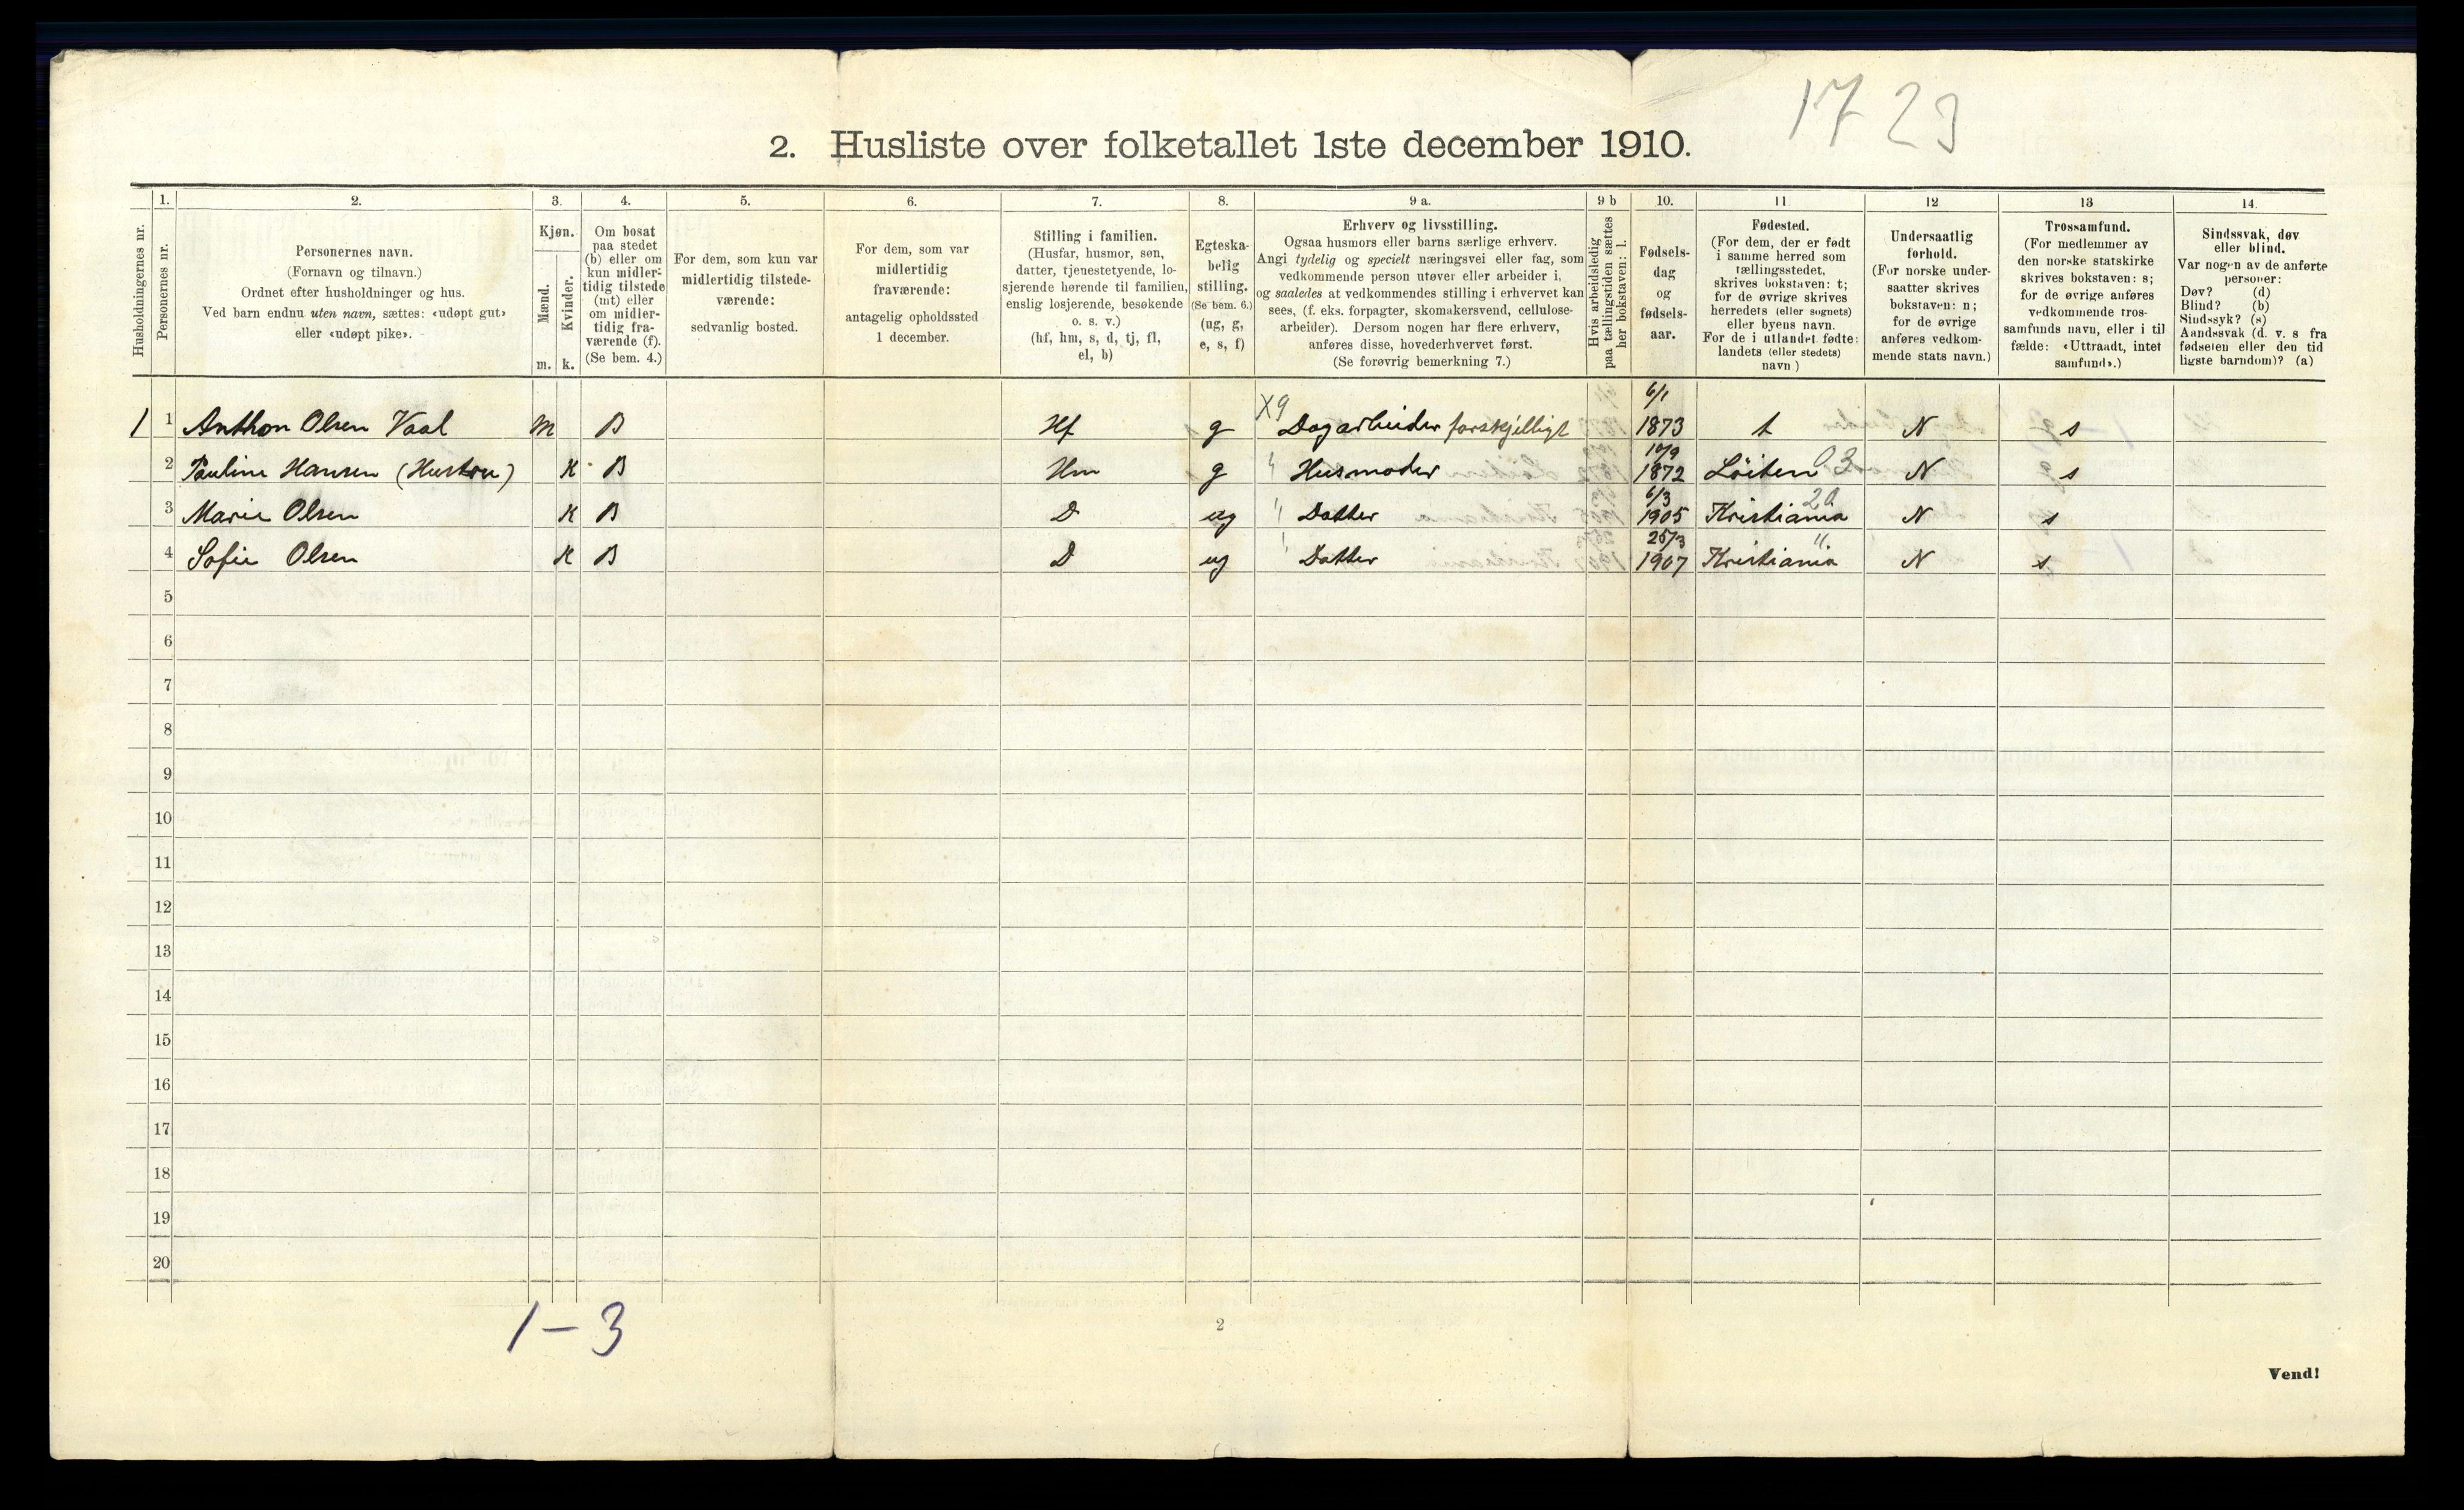 17 23
2. Husliste over folketallet 1ste december 1910.
Husholdningernes nr.
1.
Personernes nr.
2.
Personernes navn.
(Fornavn og tilnavn.)
Ordnet efter husholdninger og hus.
Ved barn endnu uten navn, sættes: «udøpt gut»
eller «udøpt pike».
3.
Kjøn.
Mænd.
Kvinder.
m. k.
4.
Om bosat
paa stedet
(b) eller om
kun midler-
tidig tilstede
(mt) eller
om midler-
tidig fra-
værende (f).
(Se bem. 4.)
5.
For dem, som kun var
midlertidig tilstede-
værende:
sedvanlig bosted.
6.
For dem, som var
midlertidig
fraværende:
antagelig opholdssted
1 december.
7.
Stilling i familien.
(Husfar, husmor, søn,
datter, tjenestetyende, lo-
sjerende hørende til familien,
enslig losjerende, besøkende
o. s. v.)
(hf, hm, s, d, tj, fl,
el, b)
8.
Egteska-
belig
stilling.
(Se bem. 6.)
(ug, g,
e, s, f)
9 a.
Erhverv og livsstilling.
Ogsaa husmors eller barns særlige erhverv.
Angi tydelig og specielt næringsvei eller fag, som
vedkommende person utøver eller arbeider i,
og saaledes at vedkommendes stilling i erhvervet kan
sees, (f. eks. forpagter, skomakersvend, cellulose-
arbeider). Dersom nogen har flere erhverv,
anføres disse, hovederhvervet først.
(Se forøvrig bemerkning 7.)
9 b
Hvis arbeidsledig
paa tællingstiden sættes
her bokstaven: l.
10.
Fødsels-
dag
og
fødsels-
aar.
11
Fødested.
(For dem, der er født
i samme herred som
tællingsstedet,
skrives bokstaven: t;
for de øvrige skrives
herredets (eller sognets)
eller byens navn.
For de i utlandet fødte:
landets (eller stedets)
navn)
12
Undersaatlig
forhold.
(For norske under-
saatter skrives
bokstaven: n;
for de øvrige
anføres vedkom-
mende stats navn.)
13
Trossamfund.
(For medlemmer av
den norske statskirke
skrives bokstaven: s;
for de øvrige anføres
vedkommende tros-
samfunds navn, eller i til
fælde: «Uttraadt, intet
samfund».)
14.
Sindssvak, døv
eller blind.
Var nogen av de anførte
personer:
Døv? (d)
Blind? (b)
Sindssyk? (s)
Aandssvak (d. v. s fra
fødselen eller den tid
ligste barndom)? (a)
1 1 Anthon Olsen Vaal M B Hf g X9 Dagarbeider forskjelligt 6/1 1873 t N s
2 Pauline Hansen (Hustru) K B Hm g " Husmoder 10/9 1872 Löiten 03 N s
3 Marie Olsen K B D ug " Datter 6/3 1905 Kristiania 20 N s
4 Sofie Olsen K B D ug " Datter 25/3 1907 Kristiania " N s
5
6
7
8
9
10
11
12
13
14
15
16
17
18
19
20
1-3
2
Vend!